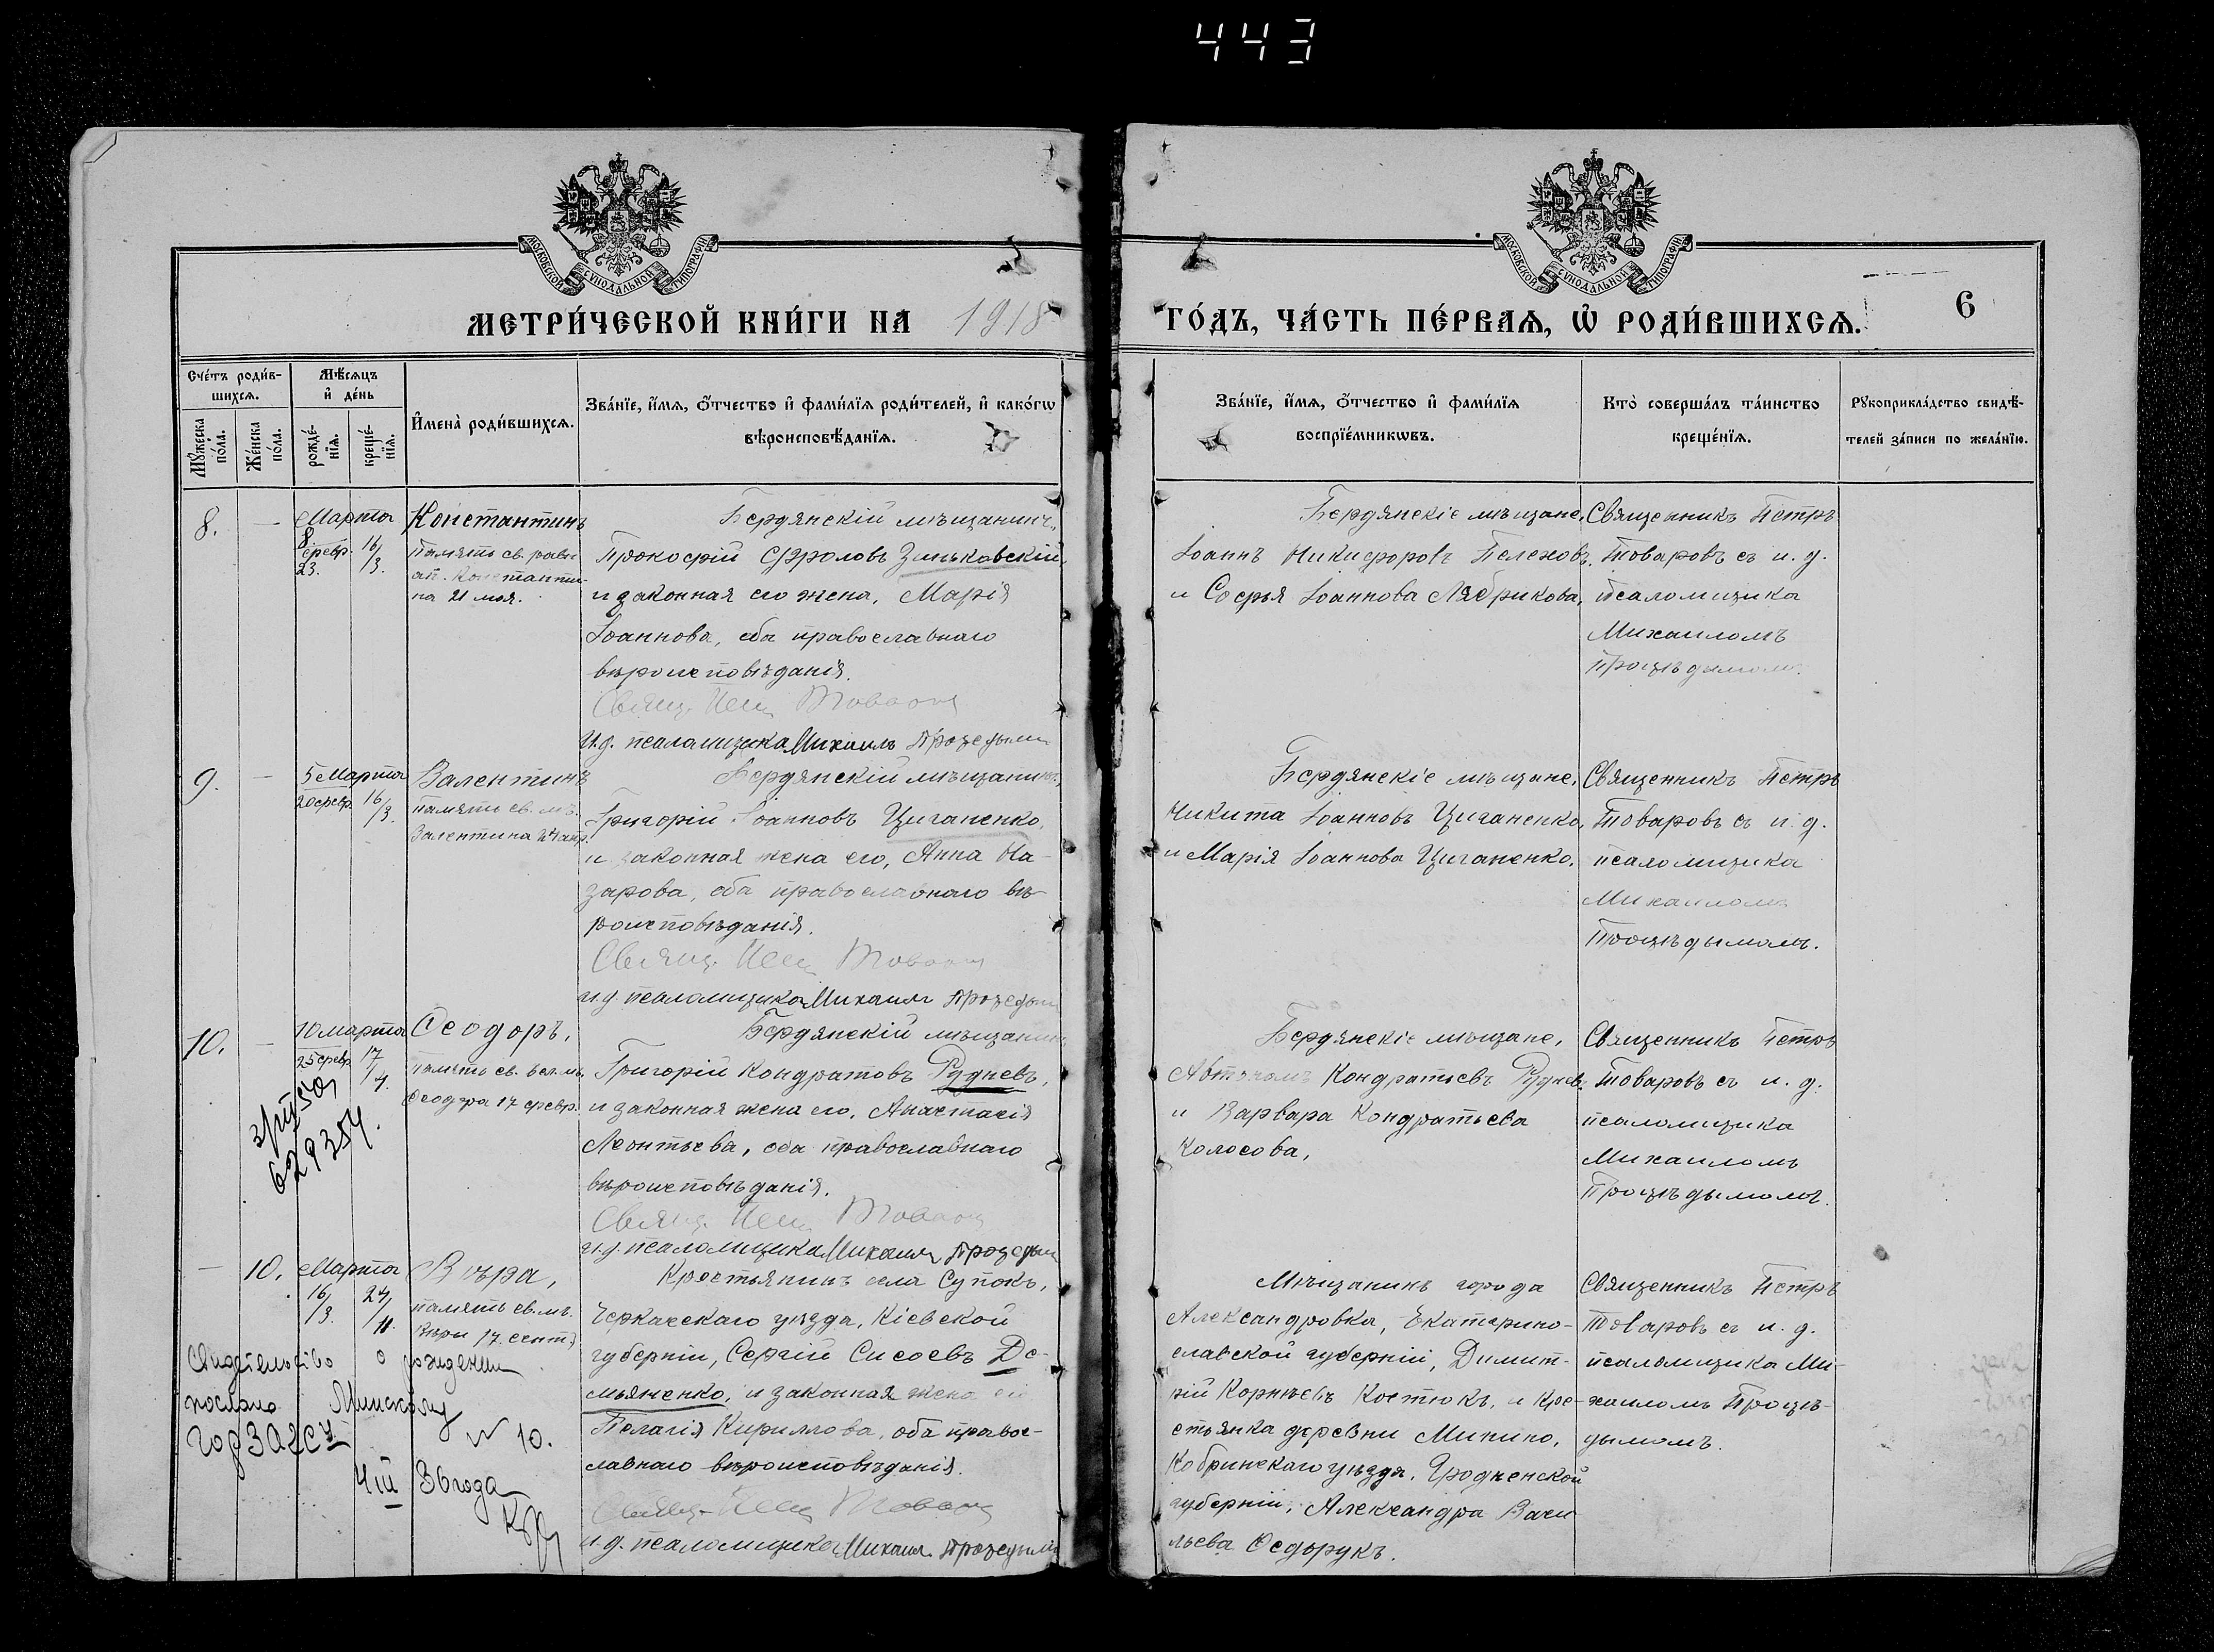 443
МОСКОВСКОЙ СѴНОДАЛЬНОЙ ТИПОГРАФІИ
МОСКОВСКОЙ СѴНОДАЛЬНОЙ ТИПОГРАФІИ
МЕТРИ́ЧЕСКОЙ КНИ́ГИ НА 1918
ГО́ДЪ, ЧА́СТЬ ПЕ́РВАѦ, Ѡ҆ РОДИ́ВШИХСѦ.
6
Сче́тъ роди́в-
шихсѧ.
Мꙋ́жеска по́ла.
Же́нска по́ла.
Мѣ́сѧцъ
и҆ де́нь
рожде́-
нїѧ.
креще́-
нїѧ.
И҆мена̀ роди́вшихсѧ.
Зва́нїе, и҆́мѧ, ѻ҆́тчество и҆ фами́лїѧ роди́телей, и҆ како́гѡ
вѣроисповѣ́данїѧ.
Зва́нїе, и҆́мѧ, ѻ҆́тчество и҆ фами́лїѧ
воспрїе́мникѡвъ.
Кто̀ соверша́лъ та́инство
креще́нїѧ.
Рꙋкоприкла́дство свидѣ́-
телей за́писи по жела́нїю.
8. —
Марта
8
февр.
23.
16/3.
Константинъ
память св. равн
ап. Константи-
на 21 мая.
Бердянскій мѣщанинъ,
Прокофій Фроловъ Зиньковскій
и законная его жена, Марія
Іоаннова, оба православнаго
вѣроисповѣданія.
Свящ. Товаровъ
И.д. псаломщика Михаилъ
Бердянскіе мѣщане,
Іоаннъ Никифоровъ Пелеховъ
и Софья Іоаннова Лябрикова,
Священникъ Петръ
Товаровъ съ и. д.
псаломщика
Михаиломъ
Проціьдымомъ.
9. —
5 Марта
20 февр.
16/3.
Валентинъ
память св. мъ.
Валентина 24 апр.
Бердянскій мѣщанинъ,
Григорій Іоанновъ Циганенко,
и законная жена его, Анна На-
зарова, оба православнаго вѣ-
роисповѣданія.
Свящ. Товаровъ
и.д. псаломщика Михаилъ
Бердянскіе мѣщане,
Никита Іоанновъ Циганенко,
и Марія Іоаннова Циганенко.
Священникъ Петръ
Товаровъ съ и. д.
псаломщика
Михаиломъ
10. —
10 марта
25 февр.
17/4.
629354.
Ѳеодоръ,
память св. вел. мъ.
Ѳеодора 17 февр.
Бердянскій мѣщанинъ
Григорій Кондратовъ Рудневъ,
и законная жена его, Анастасія
Леонтьева, оба православнаго
вѣроисповѣданія.
Свящ. Товаровъ
и.д. псаломщика Михаилъ
Бердянскіе мѣщане,
Автономъ Кондратьевъ Рудневъ
и Варвара Кондратьева
Колосова,
Священникъ Петръ
Товаровъ съ и. д.
псаломщика
Михаиломъ
— 10.
Марта
16/3.
Вѣра,
память св. мъ.
Вѣры 17. сент.
Свидетельство о рождении
послано Минскому
ГорЗАГСУ № 10.
4 III 36 года
Крестьянинъ села Супокъ,
Черкаскаго уѣзда, Кіевской
губерніи, Сергій Сисоевъ Де-
мьяненко, и законная жена его
Пелагія Кириллова, оба право-
славнаго вѣроисповѣданія.
Свящ. Товаровъ
и.д. псаломщика Михаилъ
Мѣщанинъ города
Александровка, Екатерино-
славской губерніи, Димит-
рій Корнѣевъ Костюкъ, и кре-
стьянка деревни Минино,
Кобринскаго уѣзда, Гродненской
губерніи, Александра Васи-
льева Ѳедорукъ.
Священникъ Петръ
Товаровъ съ и. д.
псаломщика Ми-
хаиломъ